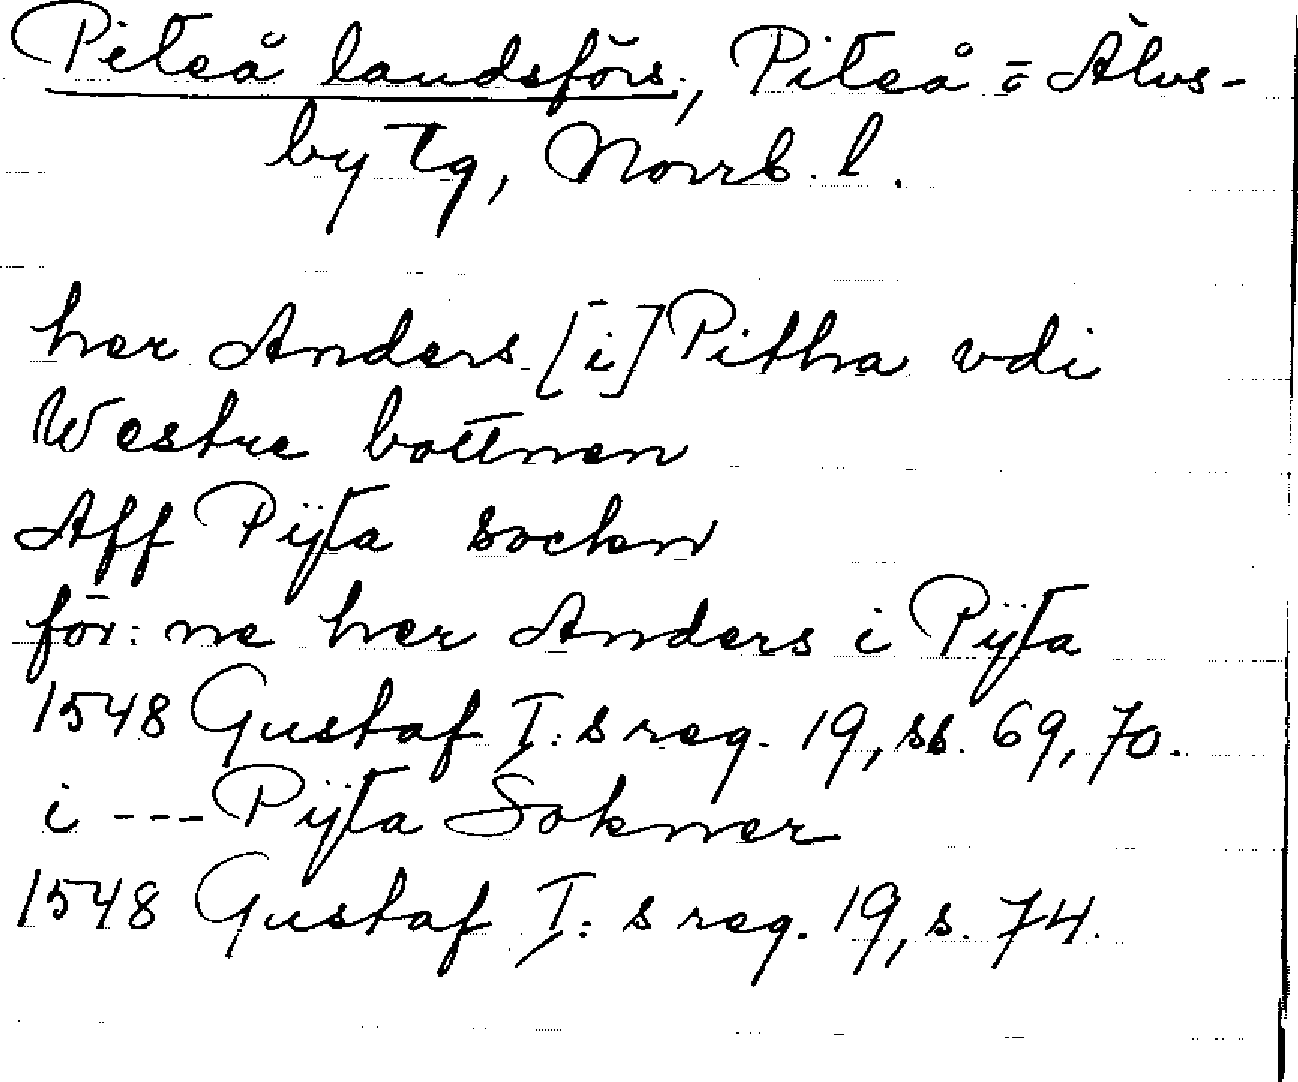 Piteå landsförs., Piteå o Älvs-
by tg, Norrb. l.
her Anders [i] Pitha vdi
Westre bottnen
Aff Pijta socken
för:ne her Anders i Pijta
1548 Gustaf I:s reg. 19, ss. 69, 70.
i --- Pijta Sokner
1548 Gustaf I:s reg. 19, s. 74.